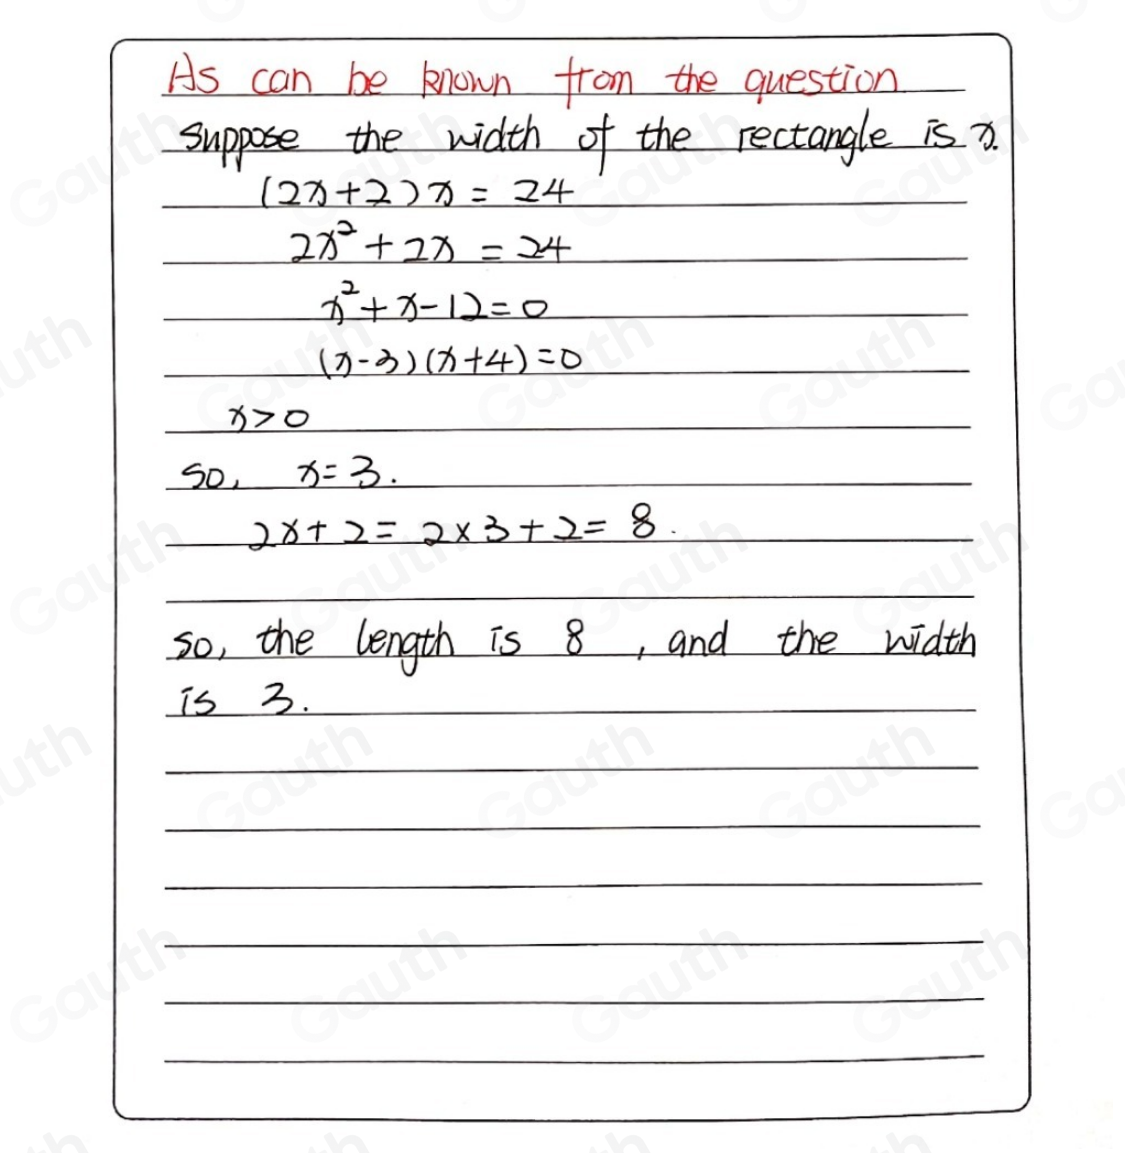 As can be known from the question
suppose the width of the rectangle is x.
(2x+2)x = 24
2x² + 2x = 24
x² + x - 12 = 0
(x-3)(x+4)=0
x>0
so, x=3.
2x+2 = 2×3+2= 8.
so, the length is 8, and the width
is 3.